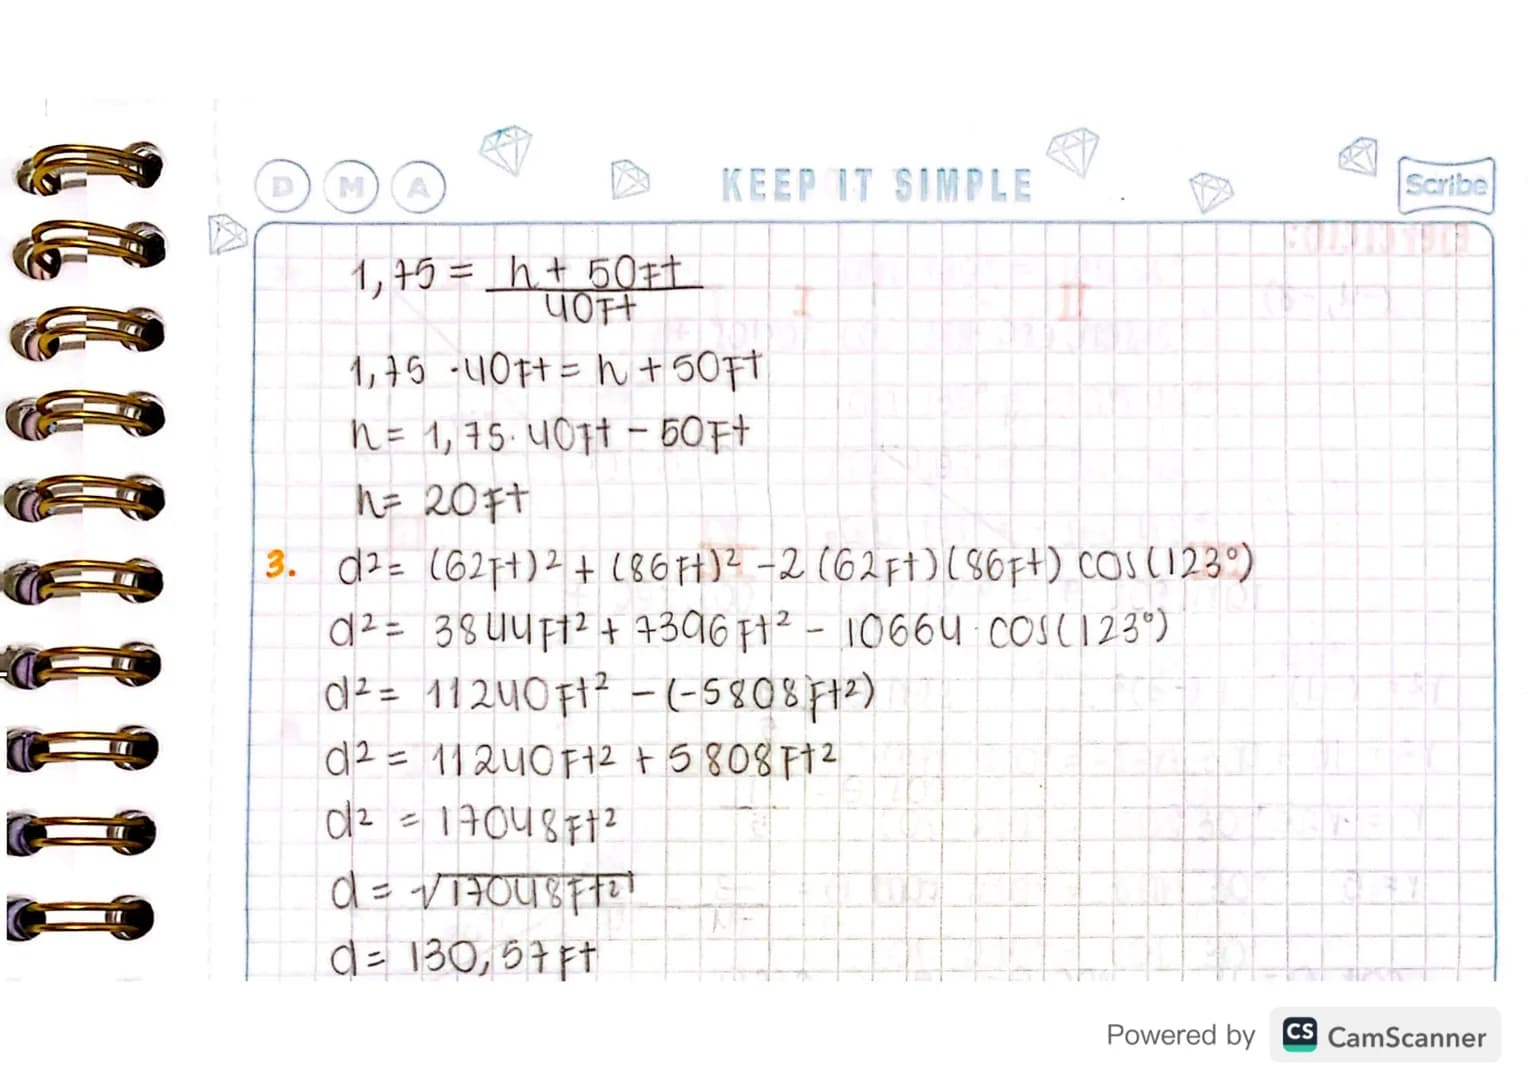 D M A KEEP IT SIMPLE Scribe
1,75 = h + 50Ft
40Ft
1,75 · 40Ft = h + 50Ft
h = 1,75 · 40Ft - 50Ft
h = 20Ft
3. d² = (62Ft)² + (86Ft)² - 2 (62Ft)(86Ft) cos(123°)
d² = 3844Ft² + 7396Ft² - 10664 · cos(123°)
d² = 11240Ft² - (-5808Ft²)
d² = 11240Ft² + 5808Ft²
d² = 17048Ft²
d = √17048Ft²
d = 130,57Ft
Powered by CS CamScanner